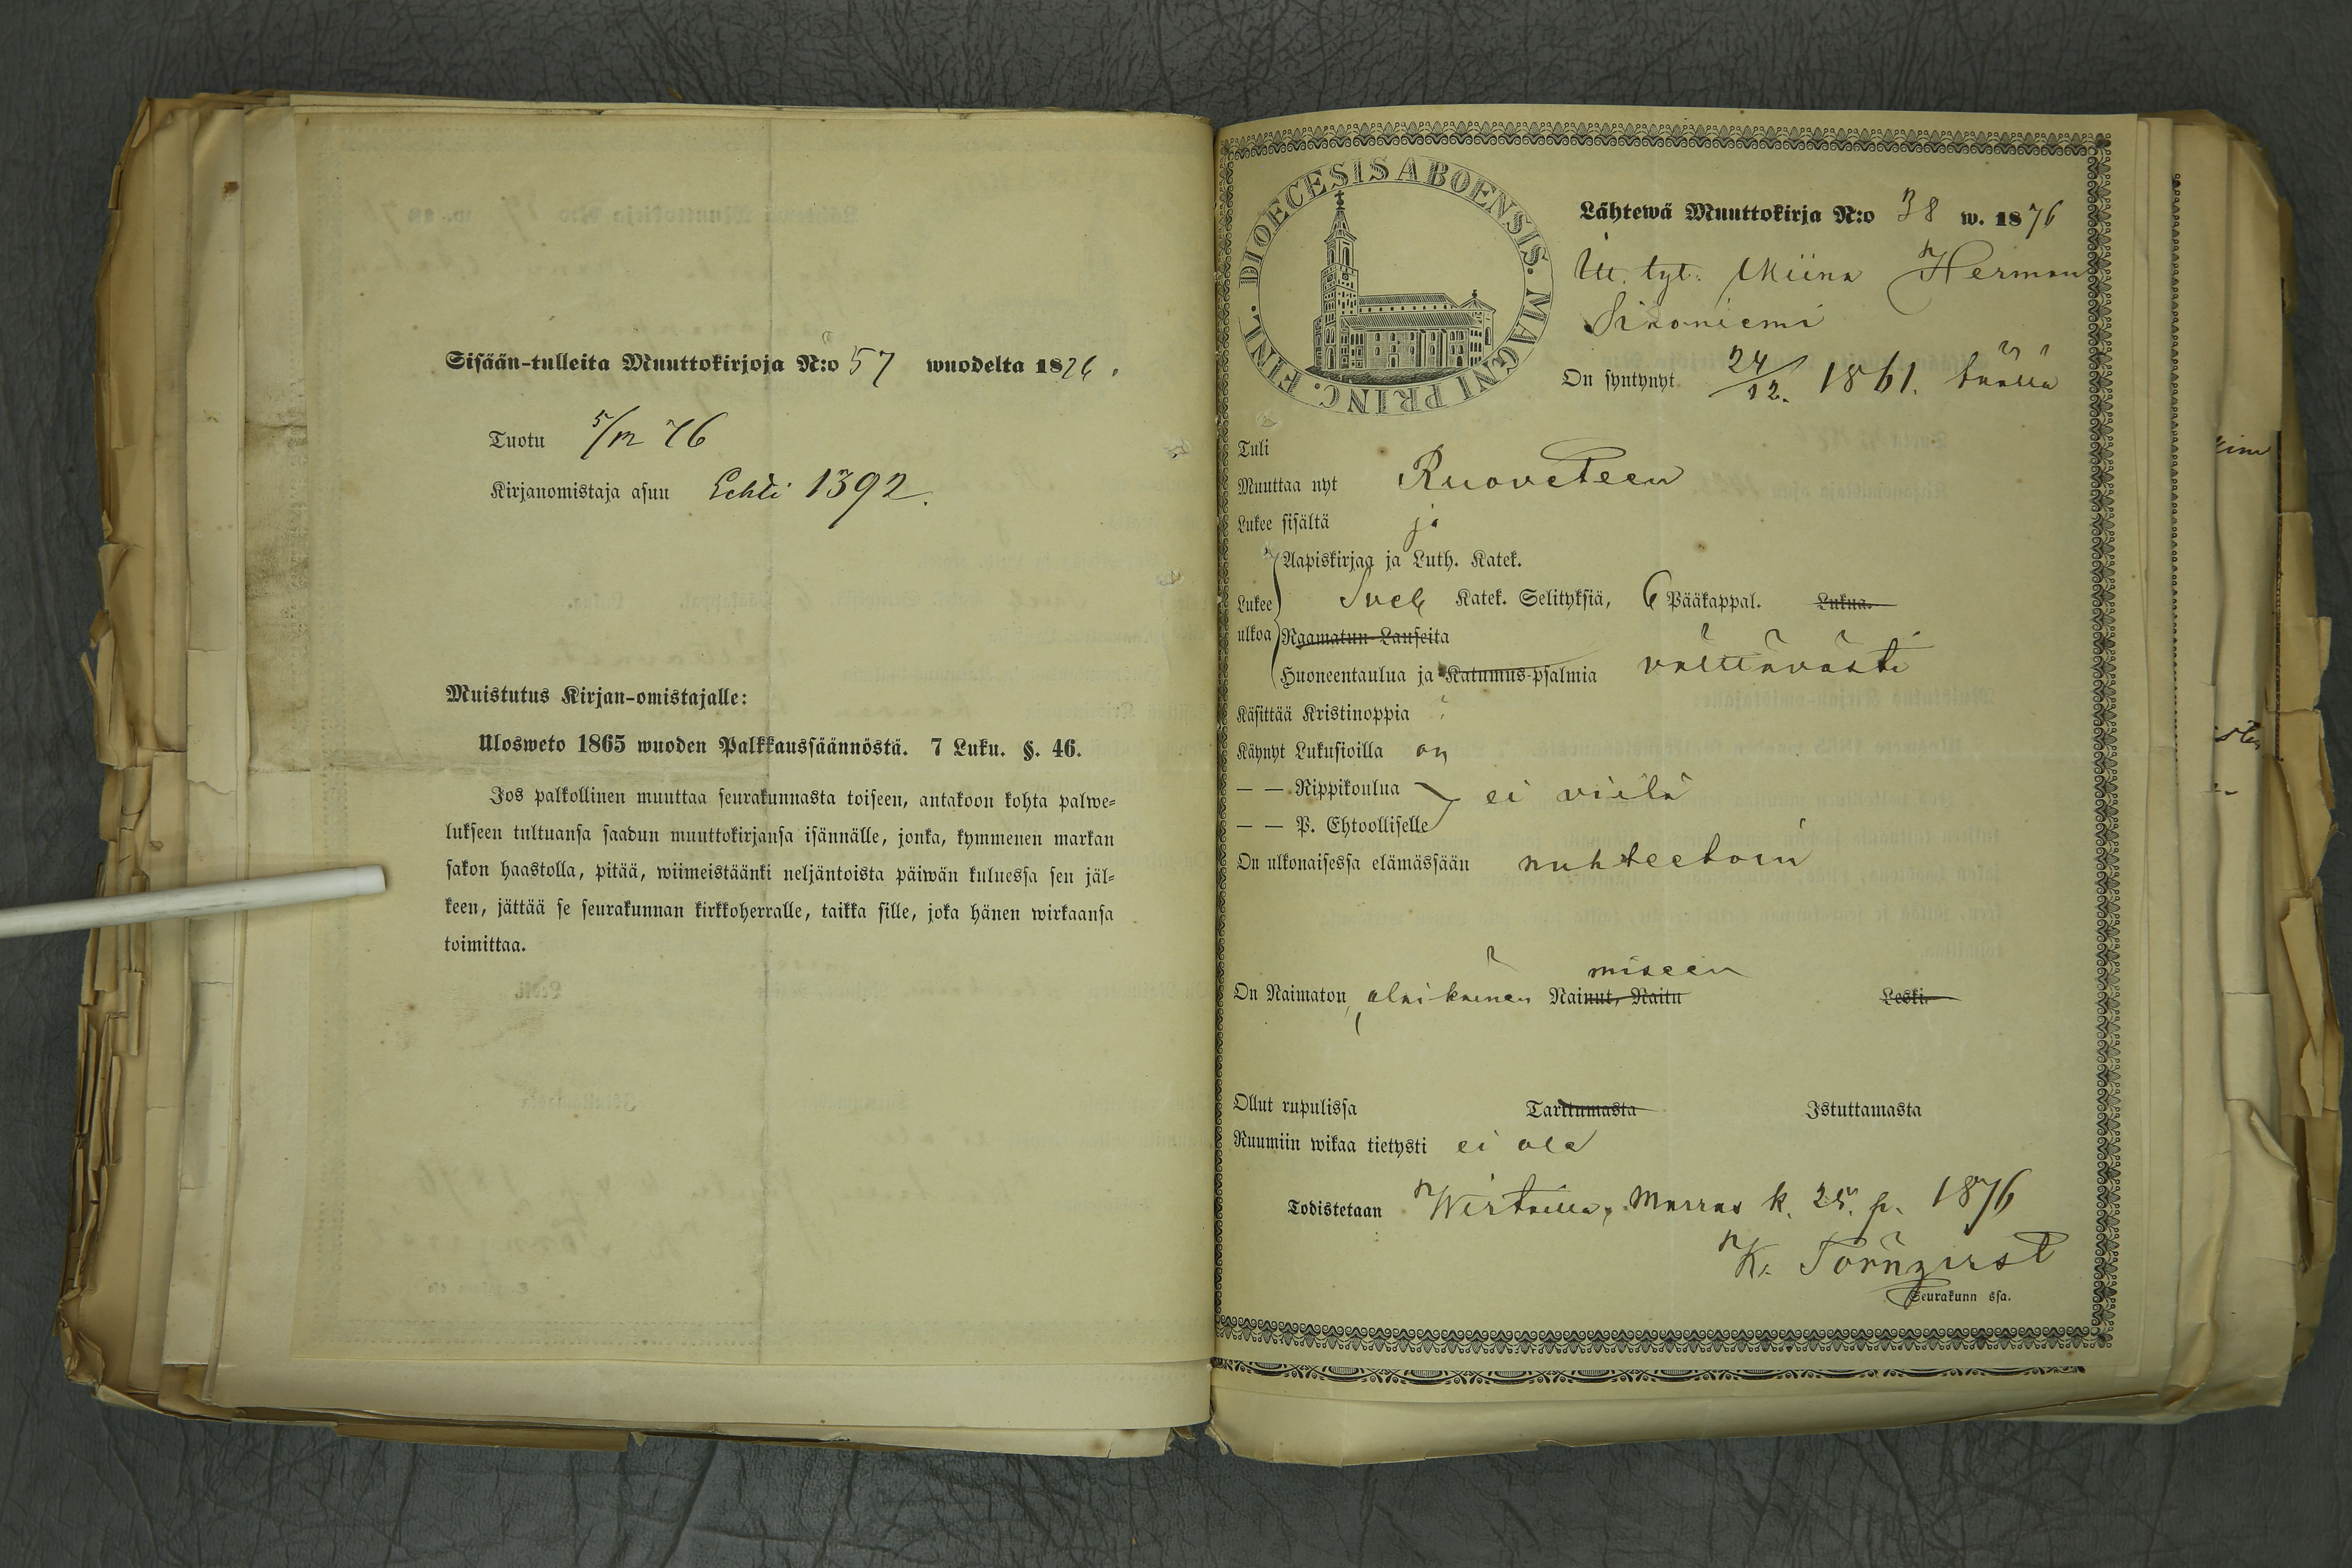 Sisään-tulleita Muuttokirjoja N:o 57 wuodelta 1876.
Tuotu 5/12 76
Kirjanomistaja asuu 1392.
Muistutus Kirjan-omistajalle:
Ulosweto 1865 wuoden Palkkaussäännöstä. 7 Luku. §. 46.
Jos palkollinen muuttaa seurakunnasta toiseen, antakoon kohta palwe-
lukseen tultuansa saadun muuttokirjansa isännälle, jonka, kymmenen markan
sakon haastolla, pitää, wiimeistäänki neljäntoista päiwän kuluessa sen jäl-
keen, jättää se seurakunnan kirkkoherralle, taikka sille, joka hänen wirkaansa
toimittaa.
DIOECESIS ABOENSIS. MAGNI PRINC. FINL.
Lähtewä Muuttokirja N:o 38 w. 1876
It. tyt. Miina Herman
On syntynyt 24/12. 1861. täällä
Tuli
Muuttaa nyt Ruoveteen
Lukee sisältä jo
Aapiskirjaa ja Luth. Katek.
Lukee Sveb Katek. Selityksiä, 6 Pääkappal. Lukua.
ulkoa Raamatun-Lauseita
Huoneentaulua ja Katumus-psalmia välttävästi
Käsittää Kristinoppia
Käynyt Lukusioilla on
— — Rippikoulua ei vielä
— — P. Ehtoolliselle
On ulkonaisessa elämässään nuhteetoin
miseen
On Naimaton, alaikäinen Nainut, Naitu Leski.
Ollut rupulissa Tarttumasta Istuttamasta
Ruumiin wikaa tietysti ei ole
Todistetaan Wirtailla, Marras k. 25. p. 1876
K. Törnqvist
Seurakunn ssa.